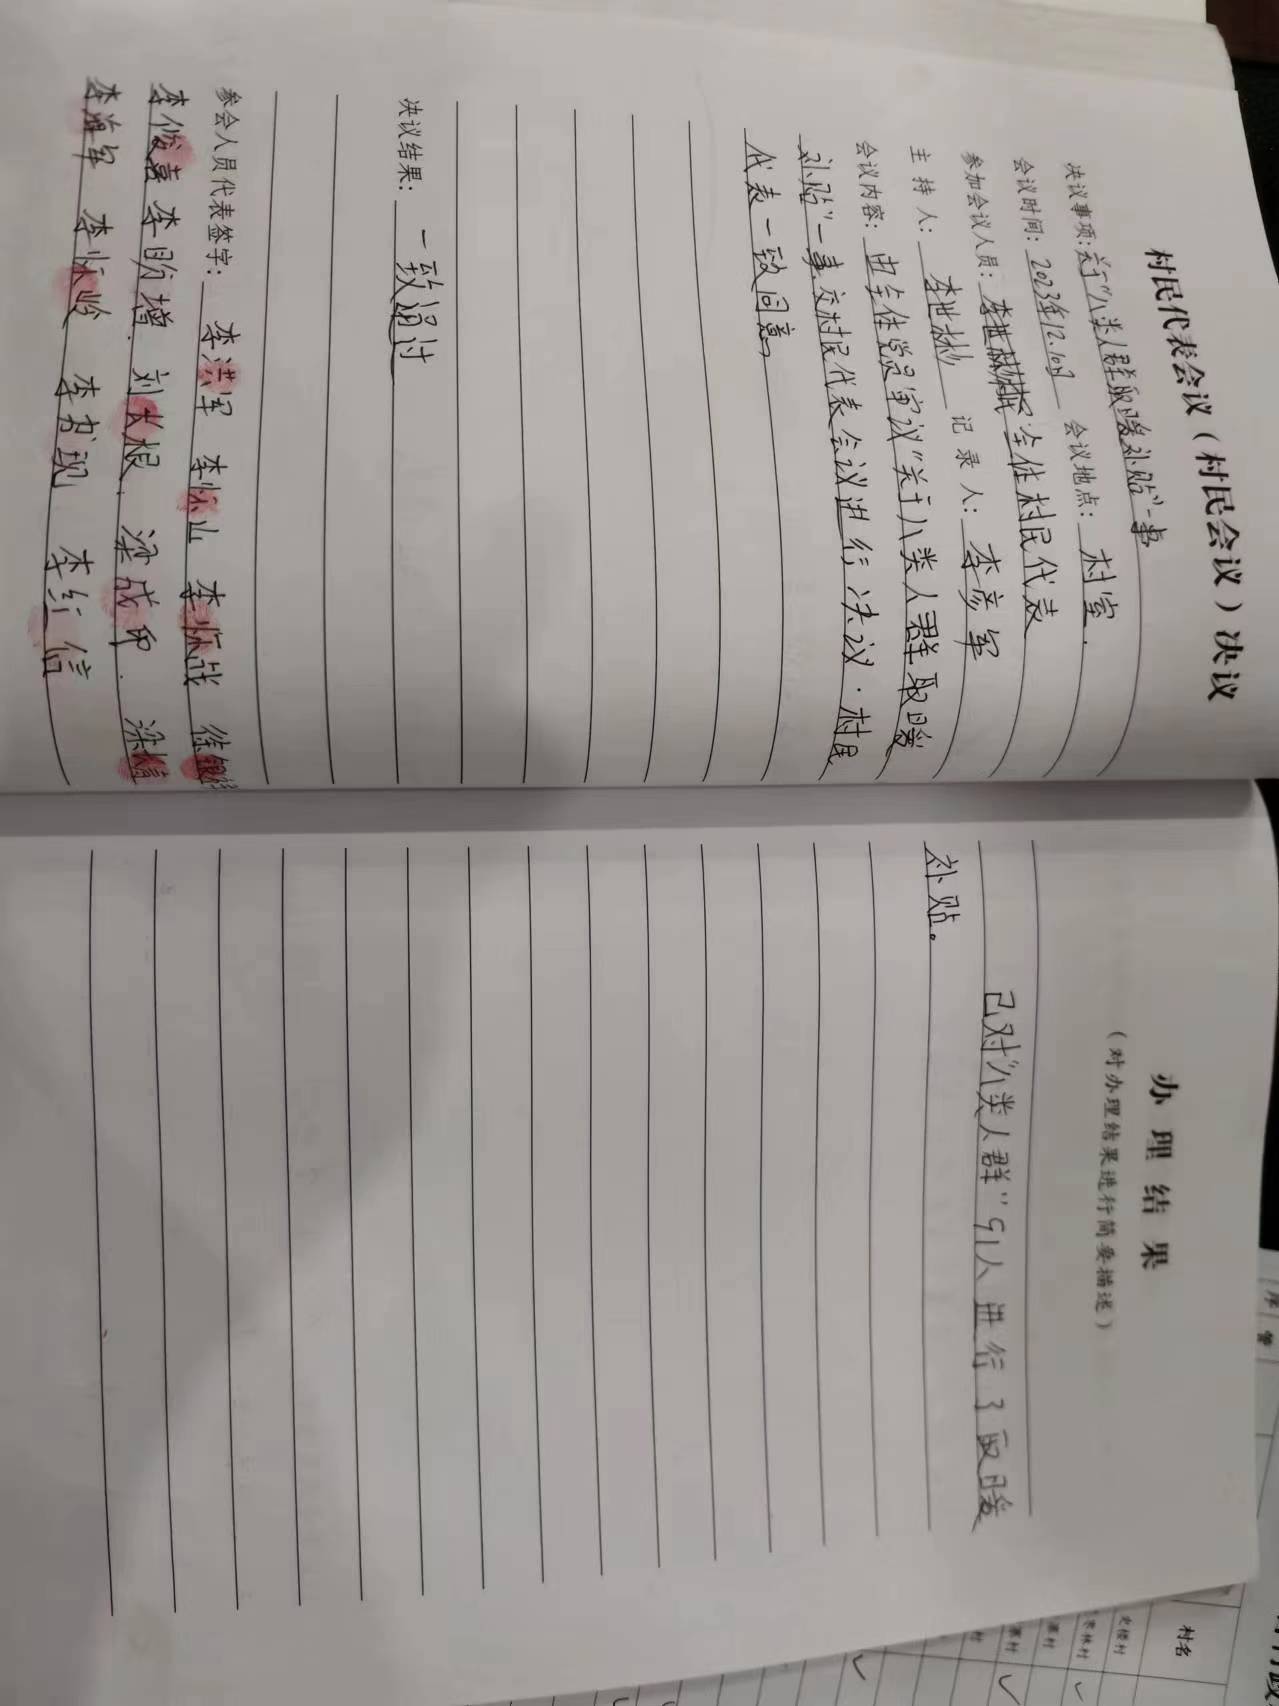 村民代表会议（村民会议）决议
决议事项：关于“八类人群取暖补贴”一事
会议时间：2023年12.10日 会议地点：村室.
参加会议人员：全体村民代表
主 持 人：李世林 记 录 人：李彦军
会议内容：由全体党员审议“关于八类人群取暖
补贴”一事交村民代表会议进行决议．村民
代表一致同意
决议结果：一致通过
参会人员代表签字：李洪军 李怀山 李怀战
李俊喜 李明增. 刘长根. 梁成印. 梁
李海军 李怀岭 李书现 李红信
办理结果
（对办理结果进行简要描述）
已对“八类人群”91人进行了取暖
补贴。
村名
史楼村
李林村
寨村
寨村
村